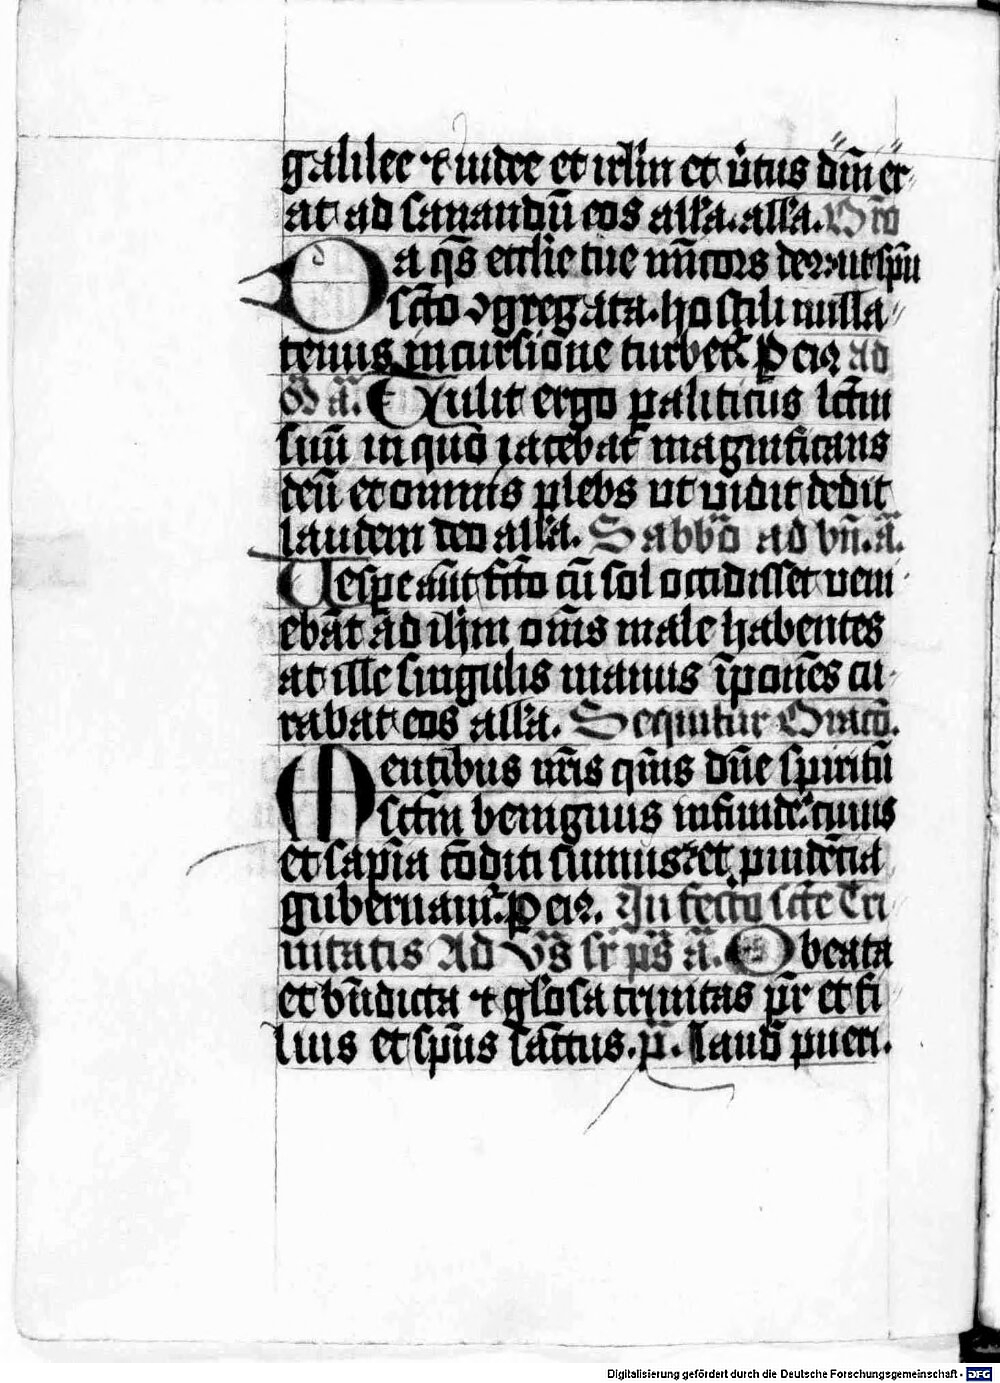 galilee ⁊ iudee et irl̄m et ūtus dn̄i er
at ad sanandū eos all̄a. all̄a. Or̄o
Da qs̄ ecclīe tue mīcors deus ut spū
sct̄o ꝯgregata. hostili nulla
tenus incursione turbet᷑ P eiꝰ ad
M̄ ā. Tulit ergo paliticus lctm̄
suū in quo iacebat magnificans
deū et omnis plebs ut vidit dedit
laudem deo all̄a. Sabb̄o ad vn̄. ā.
Uespe aūt fct̄o cū sol occidisset veni
ebāt ad ih̄m om̄s male habentes
at ille singulis manus īponēs cu
rabat eos all̄a. Sequitur Oracō.
Mentibus nr̄is qm̄s dn̄e spiritū
sctm̄ benignus infunde. cuius
et sapīa cōditi sumus et prudēcia
gubernam̄. P eiꝰ. In festo scte Tri
nitatis Ad Vs̄ sr̄ ps̄ ā. O beata
et bn̄dicta ⁊ glosa trinitas pr̄ et fi
lius et spūs sāctus. p̄. Laud̄ pueri.
Digitalisierung gefördert durch die Deutsche Forschungsgemeinschaft - DFG